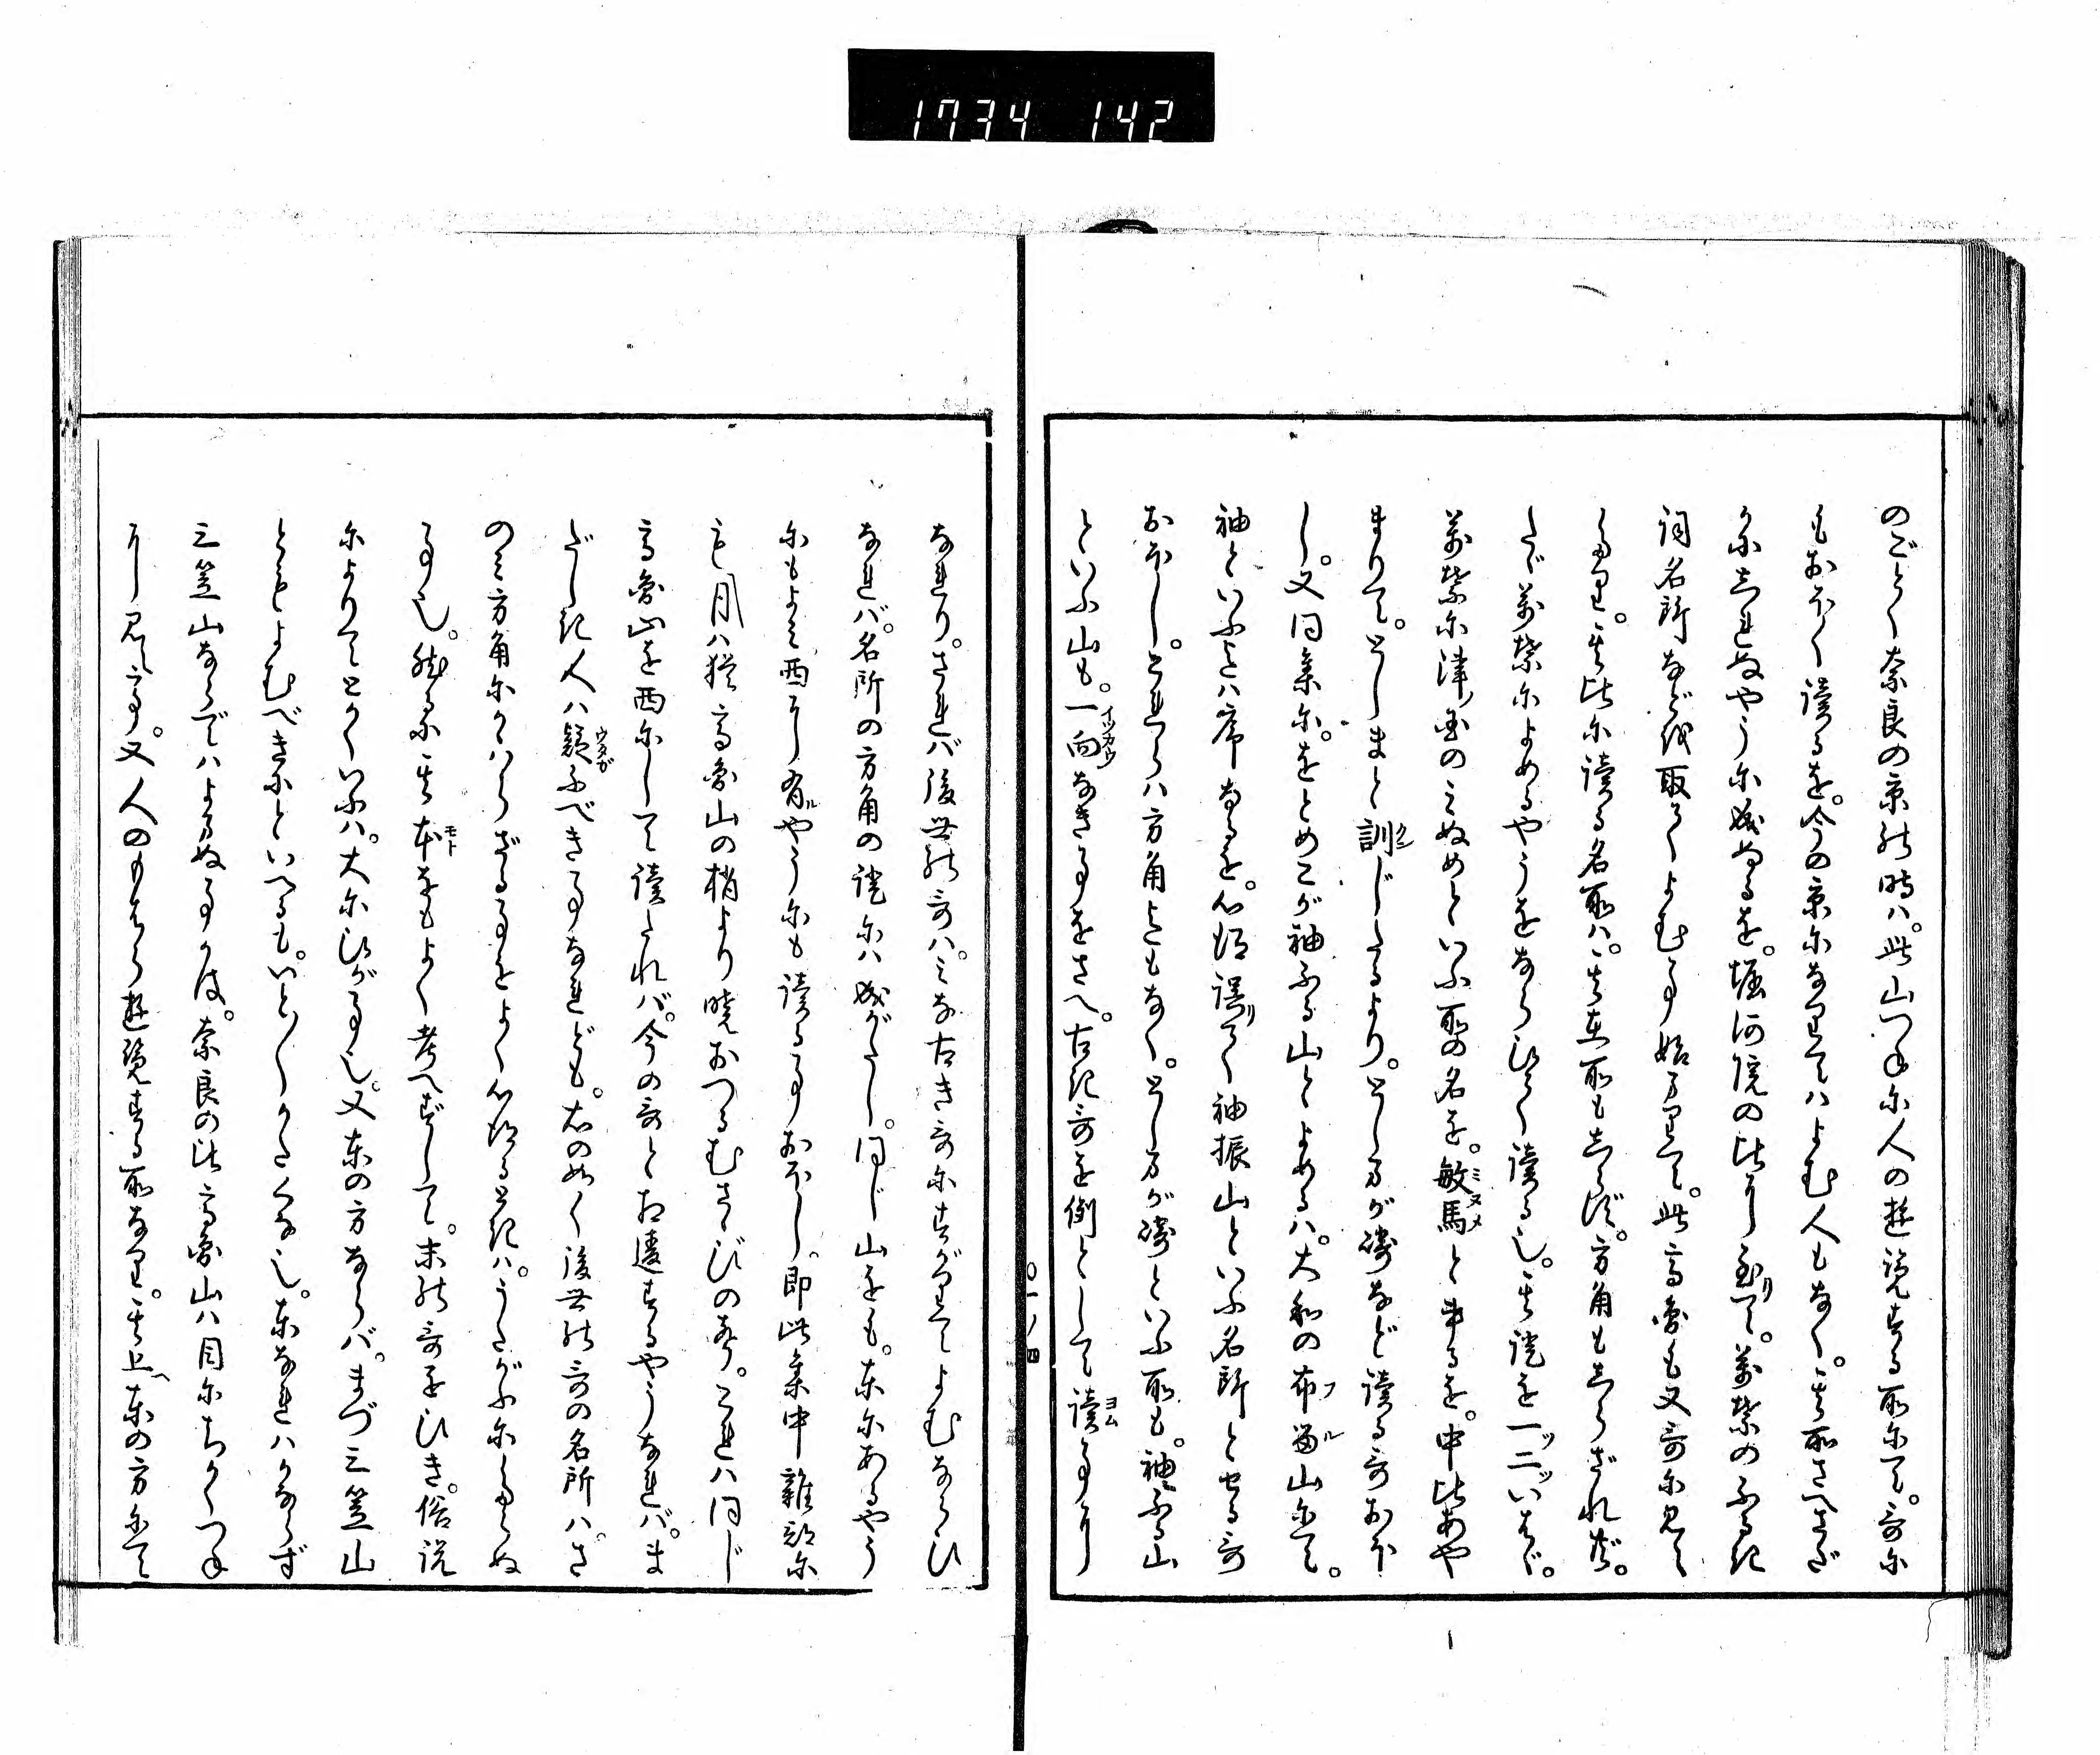 1734 142
のごとく奈良の京の時ハ。此山つねに人の遊覧する所にて。哥に
もおほく讀るを。今の京になりてハよむ人もなく。其所さへさだ
かにしれぬやうに成ぬるを。堀河院の比に至りて。萬葉のふるき
詞名所などを取てよむ事始まりて。此高圓も又哥に見え
たり。其比に讀る名所ハ。其在所もしらず。方角もしらざれば。
たゞ萬葉によめるやうをならひて讀る也。其證を一ッ二ッいはゞ。
萬葉に津國のミぬめといふ所の名を。敏馬とかけるを。中比あや
まりて。としまと訓じたるより。としまが礒など讀る哥おほ
し。又同集に。をとめこが袖ふる山とよめるハ。大和の布留山にて。
袖といふまでハ序なるを。心得誤りて袖振山といふ名所とせる哥
おほし。これらハ方角までもなく。としまが礒といふ所も。袖ふる山
といふ山も。一向なき事をさへ。古き哥を例として讀事に
一ノ四
なれり。されバ後世の哥ハ。ミな古き哥にすがりてよむならひ
なれバ。名所の方角の證にハ成がたし。同じ山をも。東にあるやう
にもよミ西に有やうにも讀る事おほし。即此集中雜部に
も月ハ猶高圓山の梢より曉おつるむさゝびの聲。これハ同じ
高圓山を西にして讀たれバ。今の哥と相違するやうなれバ。ま
だしき人ハ疑ふべき事なれども。右の如く後世の哥の名所ハ。さ
のミ方角にかゝはらざる事をよく心得るときハ。うたがふにたらぬ
事也。然るに其本をもよく考へずして。末の哥をひき。俗説
によりてとかくいふハ。大にひが事也。又東の方ならバ。まづ三笠山
とこそよむべきにといへるも。いと〱かたくな也。東なれハかならず
三笠山ならでハよまぬ事かは。奈良の比高圓山ハ目にちかくつね
に見え高。又人のもはら遊覧する所なり。其上東の方にて